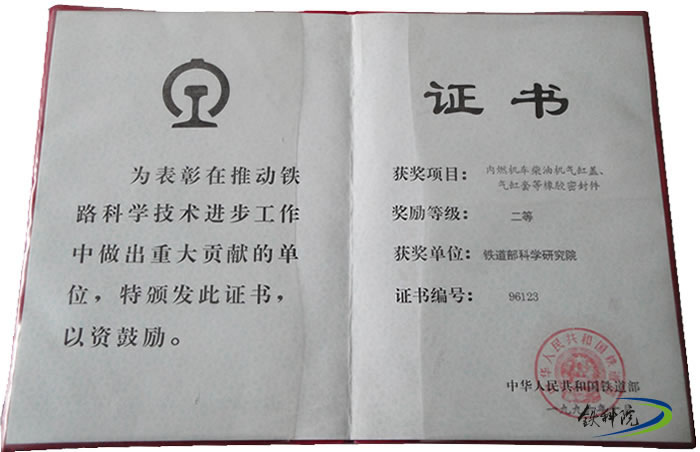 为表彰在推动铁
路科学技术进步工作
中做出重大贡献的单
位，特颁发此证书，
以资鼓励。
证书
获奖项目：内燃机车柴油机气缸盖、
气缸套等橡胶密封件
奖励等级：二等
获奖单位：铁道部科学研究院
证书编号：96123
中华人民共和国铁道部
铁科院